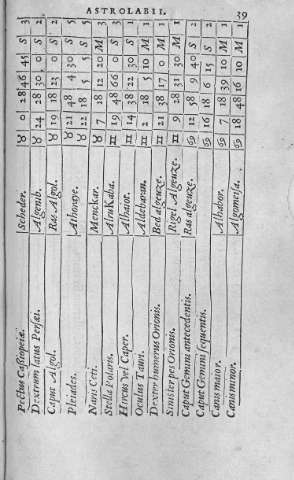 ASTROLABII. 39
Pectus Cassiopeiæ. Scheder. ♉ 0 28 46 45 S 3
Dextrum latus Persæi. Algenib. ♉ 24 28 30 0 S 2
Caput Algol. Ras Algol. ♉ 19 18 23 0 S 2
Pleiades. Athoraye. ♉ 21 48 4 30 S 5
♉ 22 18 5 5 S 5
Naris Ceti. Menckar. ♉ 7 18 12 20 M 3
Stella Polaris. Alrukaba. ♊ 19 48 66 0 S 3
Hircus vel Caper. Alhaiot. ♊ 14 38 22 30 S 1
Oculus Tauri. Aldebaran. ♊ 2 18 5 10 M 1
Dexter humerus Orionis. Bed algeuze. ♊ 21 38 17 0 M 1
Sinister pes Orionis. Rigel Algeuze. ♊ 9 28 31 30 M 1
Caput Gemini antecedentis. Ras algeuze. ♋ 12 58 9 40 S 2
Caput Gemini sequentis. ♋ 16 18 6 15 S 2
Canis maior. Alhabor. ♋ 7 18 39 10 M 1
Canis minor. Algomeisa. ♋ 18 48 16 10 M 1